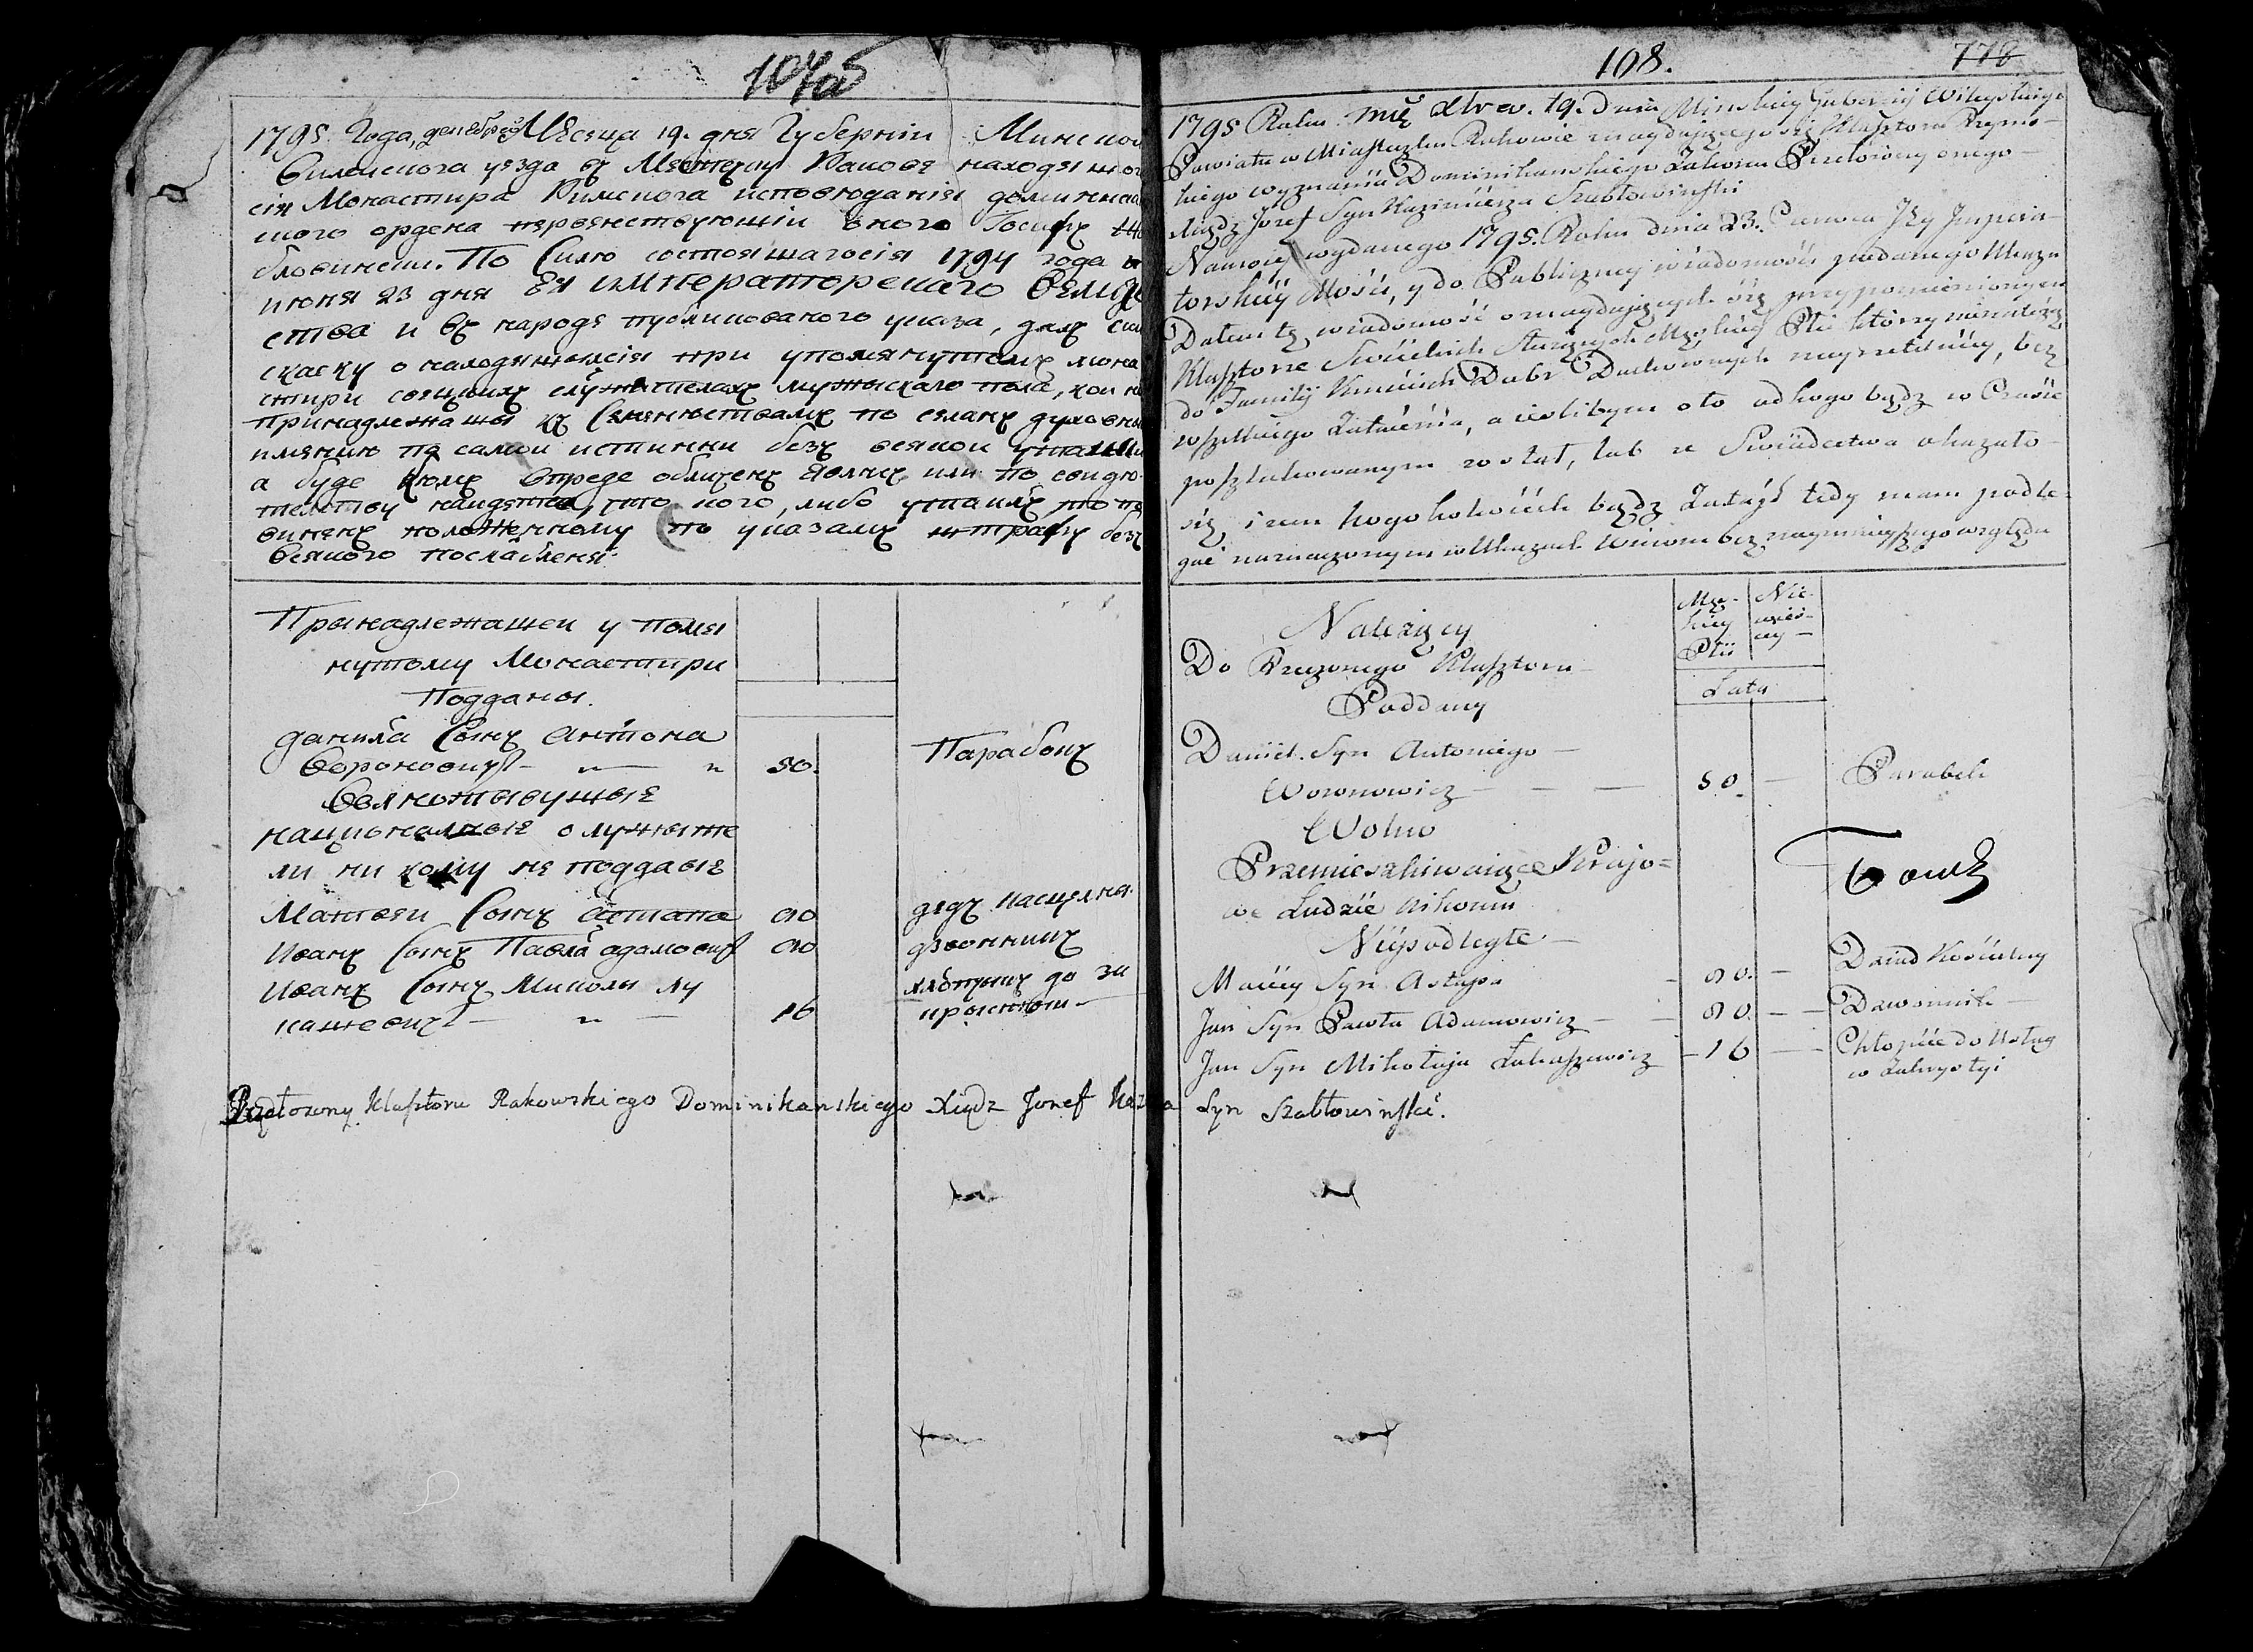 107об
1795. Года, декабря Месеца 19. дня Губернiи Минской
Вилейского уезда въ Местечку Ракове находящаго
сiя Монастира Римскога исповюданiя доминикан
скога ордена первенствующiи оного Iосифъ
бловински. По Силю состоящагосiя 1794 года
июня 23 дня Ея императорскаго Величе
ства и въ народе публикованого указа, далъ сiю
скаску о находящымсiя при упомянутомъ мона
стири светцкихъ служителахъ мужыскаго пола, кои не
принадлежащы къ Семенствамъ по селамъ духовны
имению по самой истинни безъ всякой утайки
а буде кемъ впреде обличенъ явлюсь или по свидю
телству найдетса, что кого, либо утаилъ, то по
виненъ положенному по указамъ штрафу безъ
всякого послабленя.
Принадлежащеи у помя
нутому Монастири
Подданы.
данила Сынъ Антона
Вороновичъ 50. Парабокъ
Волножывущые
национальные служыте
ли ни кому не поддане
Мантвей Сынъ Астапа 90 дедъ касцелны
Иванъ Сынъ Павла адамовичъ 90 дзвонникъ
Иванъ Сынъ Миколы лу
кашевичъ 16 хлопчикъ до за
крыстыи
Przełożony Klasztoru Rakowskiego Dominikańskiego Xiądz Jozef
108. 778
1795 Roku Mię Xbra. 19. Dnia Minskiey Gubernij Wileyskiego
Powiatu w Miasteczku Rakowie znayduiącego się Klasztoru Rzyms-
kiego wyznania Dominikanskiego Zakonu Przełożony onego
Xiądz Jozef Syn Kazimierza Szabłowinski
Na mocy wydanego 1795. Roku dnia 23. Czerwca Jey Impera-
torskiey Mości, y do Publiczney wiadomości podanego Ukazu
Dałem tę wiadomość o znayduiących się przy pomienionym
Klasztorze Swieckich Służących Męskiey Płci którzy nienależą
do Familij Kmiecich Dobr Duchownych nayrzetelniey, bez
wszelkiego Zataienia, a ieslibym o to od kogo bądz w Czasie
poszlakowanym został, lub ze Swiadectwa okazało
się iżem kogokolwiek bądz Zataił tedy mam podle-
gać naznaczonym w Ukazach Winom bez naymnieyszego względu
Należący
Do Rzeczonego Klasztoru
Poddany
Męs-
kiey
Płci
Nie-
wieś-
ciey
Lata
Daniel Syn Antoniego
Woronowicz 50. Parobek
Wolno
Przemieszkiwaiące Krajo=
we Ludzie nikomu
Niepodległe
Maciey Syn Astapa 90. Dziad Kościelny
Jan Syn Pawła Adamowicz 90. Dzwonnik
Jan Syn Mikołaja Łukaszewicz 16 Chłopiec do Usług
w Zakrystyi
Syn Szabłowinski.